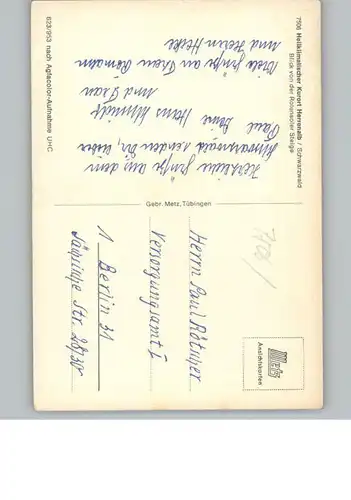 7506 Heilklimatischer Kurort Herrenalb / Schwarzwald
Blick von der Rotensoler Steige
Herzliche Grüße aus dem
Schwarzwald senden Dir, lieber
Paul Deine Hans Schmidt
und Frau
Viele Grüße an Frau
und Herrn Hecke
623/953 nach Agfacolor-Aufnahme UHC
Gebr. Metz, Tübingen
Metz
Ansichtskarten
Herrn Paul
Versorgungsamt I
1 Berlin 31
Str. 28/30